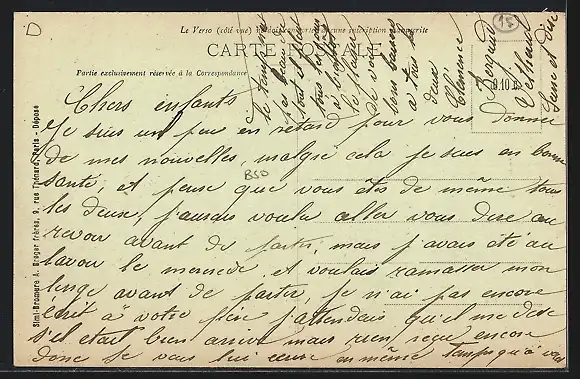 D
18
Le Verso (côté vue) ne doit comporter aucune inscription manuscrite
CARTE POSTALE
Partie exclusivement réservée à la Correspondance
Simi-Bromure A. Breger frères, 9, rue Thénard, Paris - Déposé
Chers enfants
Je suis un peu en retard pour vous donner
de mes nouvelles, malgré cela je suis en bonne
santé, et pense que vous êtes de même tous
les deux, j'aurais voulu aller vous dire au
revoir avant de partir, mais j'avais été au
lavoir le mercredi, et voulais ramasser mon
linge avant de partir, je n'ai pas encore
écrit à votre père j'attendais qu'il me dise
s'il etait bien arrivé mais rien reçu encore
donc je vais lui ecrire en même temps qu'à vous
BSD
le temps
pas beau
tout
tous les jours
à bientôt
le plaisir
de vous
bons baisers
à tous les
deux
Clemence
8.10
Seine et Oise